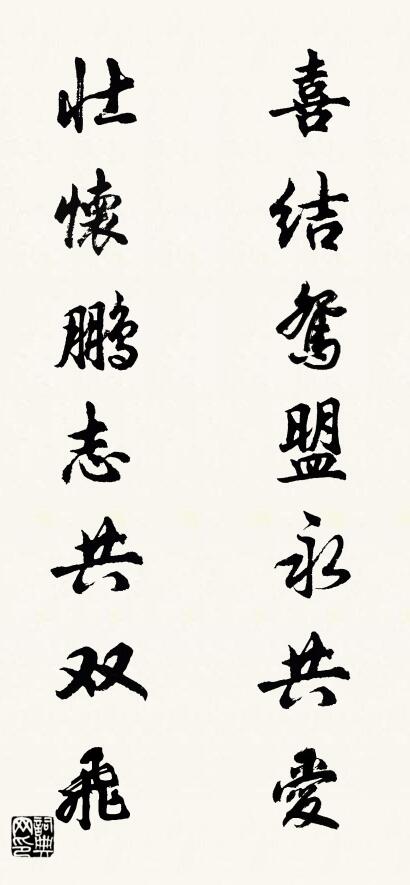 喜结鸳盟永共愛
壮懷鹏志共双飛
詞典网印